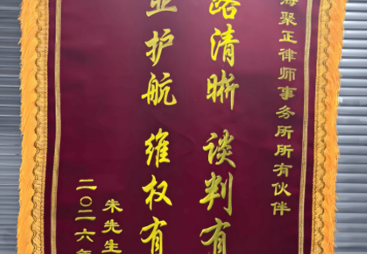 海聚正律师事务所所有伙伴
路清晰 谈判有
业护航 维权有
朱先生
二〇二六年